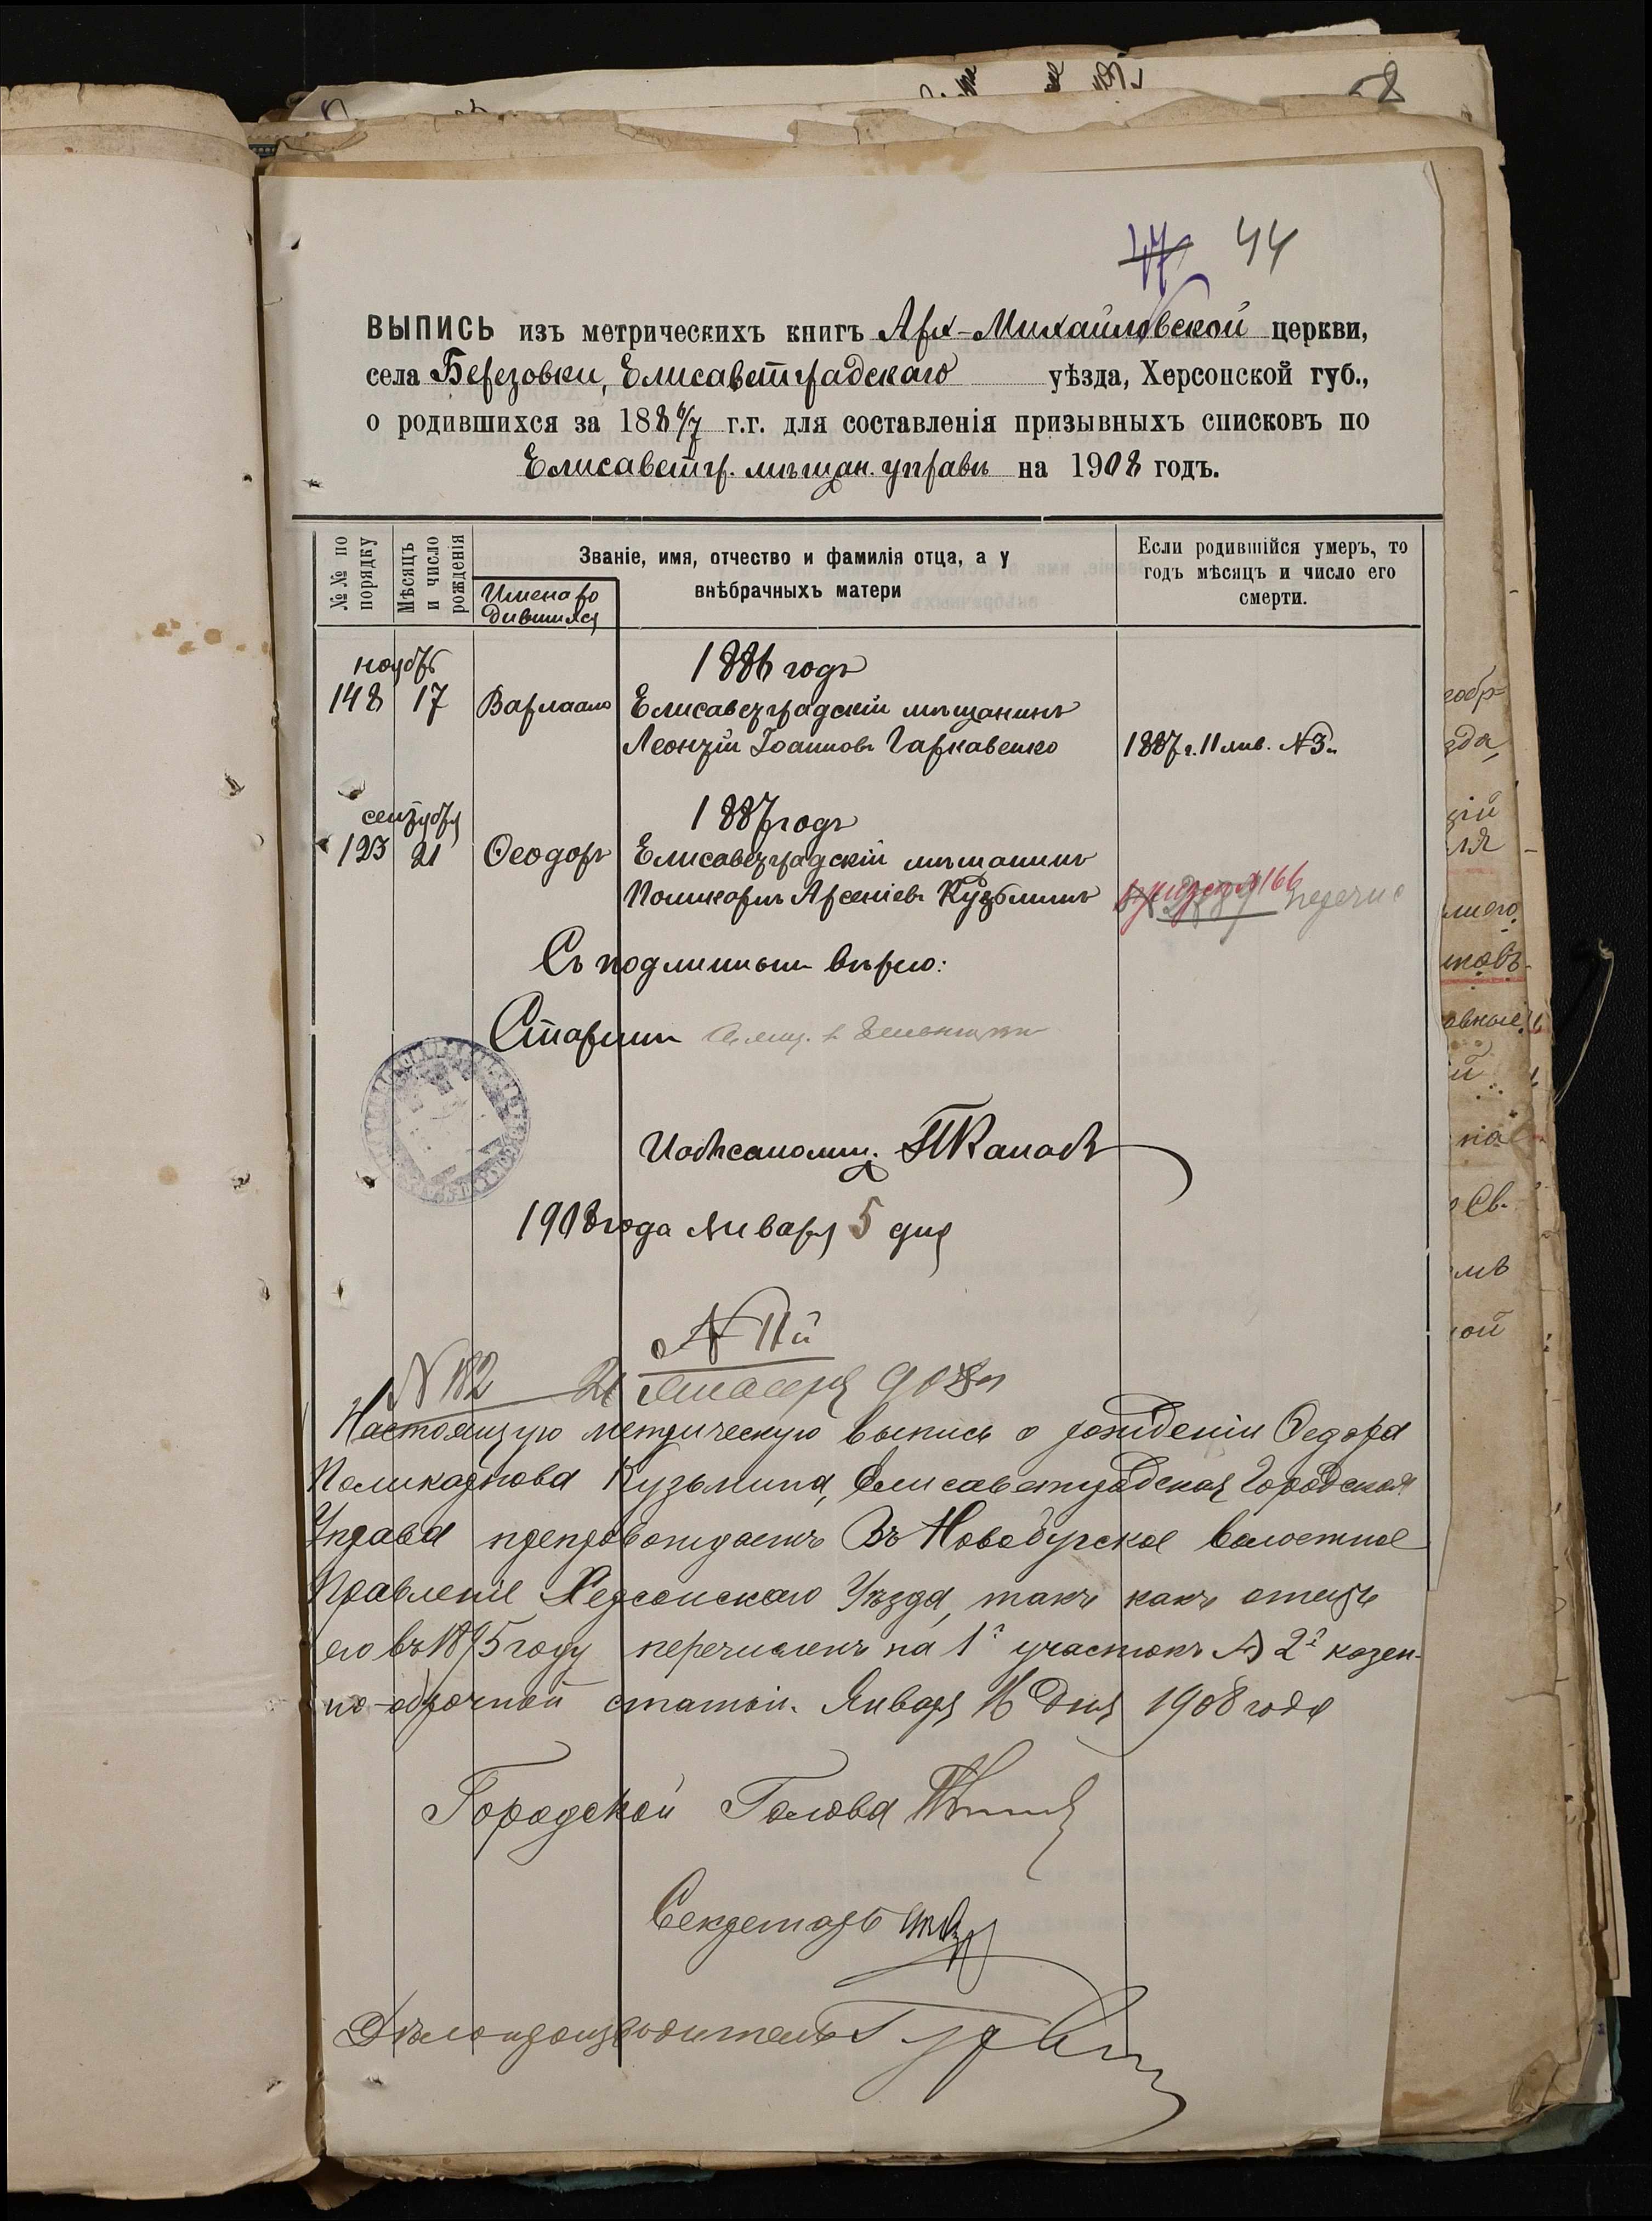 47 44
ВЫПИСЬ изъ метрическихъ книгъ Арх-Михайловской церкви,
села Березовки, Елисаветградскаго уѣзда, Херсонской губ.,
о родившихся за 1886/7 г.г. для составленія призывныхъ списковъ по
Елисаветгр. мѣщан. управѣ на 1908 годъ.
№№ по порядку
Мѣсяцъ и число рожденія
Имена родившихся
Званіе, имя, отчество и фамилія отца, а у
внѣбрачныхъ матери
Если родившійся умеръ, то
годъ мѣсяцъ и число его
смерти.
ноябрь
1886 годъ
148 17 Варлаамъ Елисаветградскій мѣщанинъ
Леонтій Іоанновъ Гаркавенко 1887 г. 11 янв. №3.
сентября
1887 годъ
123 21 Ѳеодоръ Елисаветградскій мѣщанинъ
Поликарпъ Арсеніевъ Кузьминъ
№166
Съ подлиннымъ вѣрно:
1908 года Января 5 дня
№ 11й
№ 182 21 Января 908 г
Настоящую метрическую выпись о рожденіи Ѳедора
Поликарпова Кузьмина, Елисаветградская Городская
Управа препровождаетъ Въ Новобугское волостное
Правленіе Херсонскаго Уѣзда, такъ какъ отецъ
его въ 1895 году перечисленъ на 1й участокъ № 2й казен-
но-оброчной статьи. Января 16 Дня 1908 года
Городской Голова
Секретарь
Дѣлопроизводитель